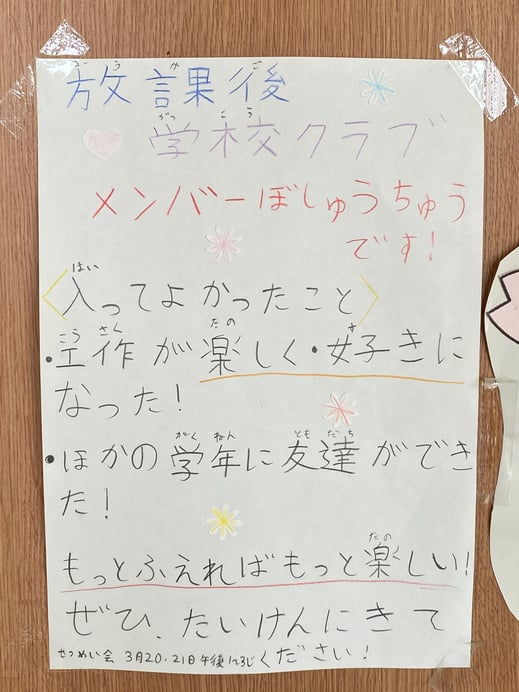 放課後
学校クラブ
メンバーぼしゅうちゅう
です!
〈入ってよかったこと〉
・工作が楽しく・好きに
なった!
・ほかの学年に友達ができ
た!
もっとふえればもっと楽しい!
ぜひ、たいけんにきて
ください!
せつめい会 3月20.21日午後1~3じ